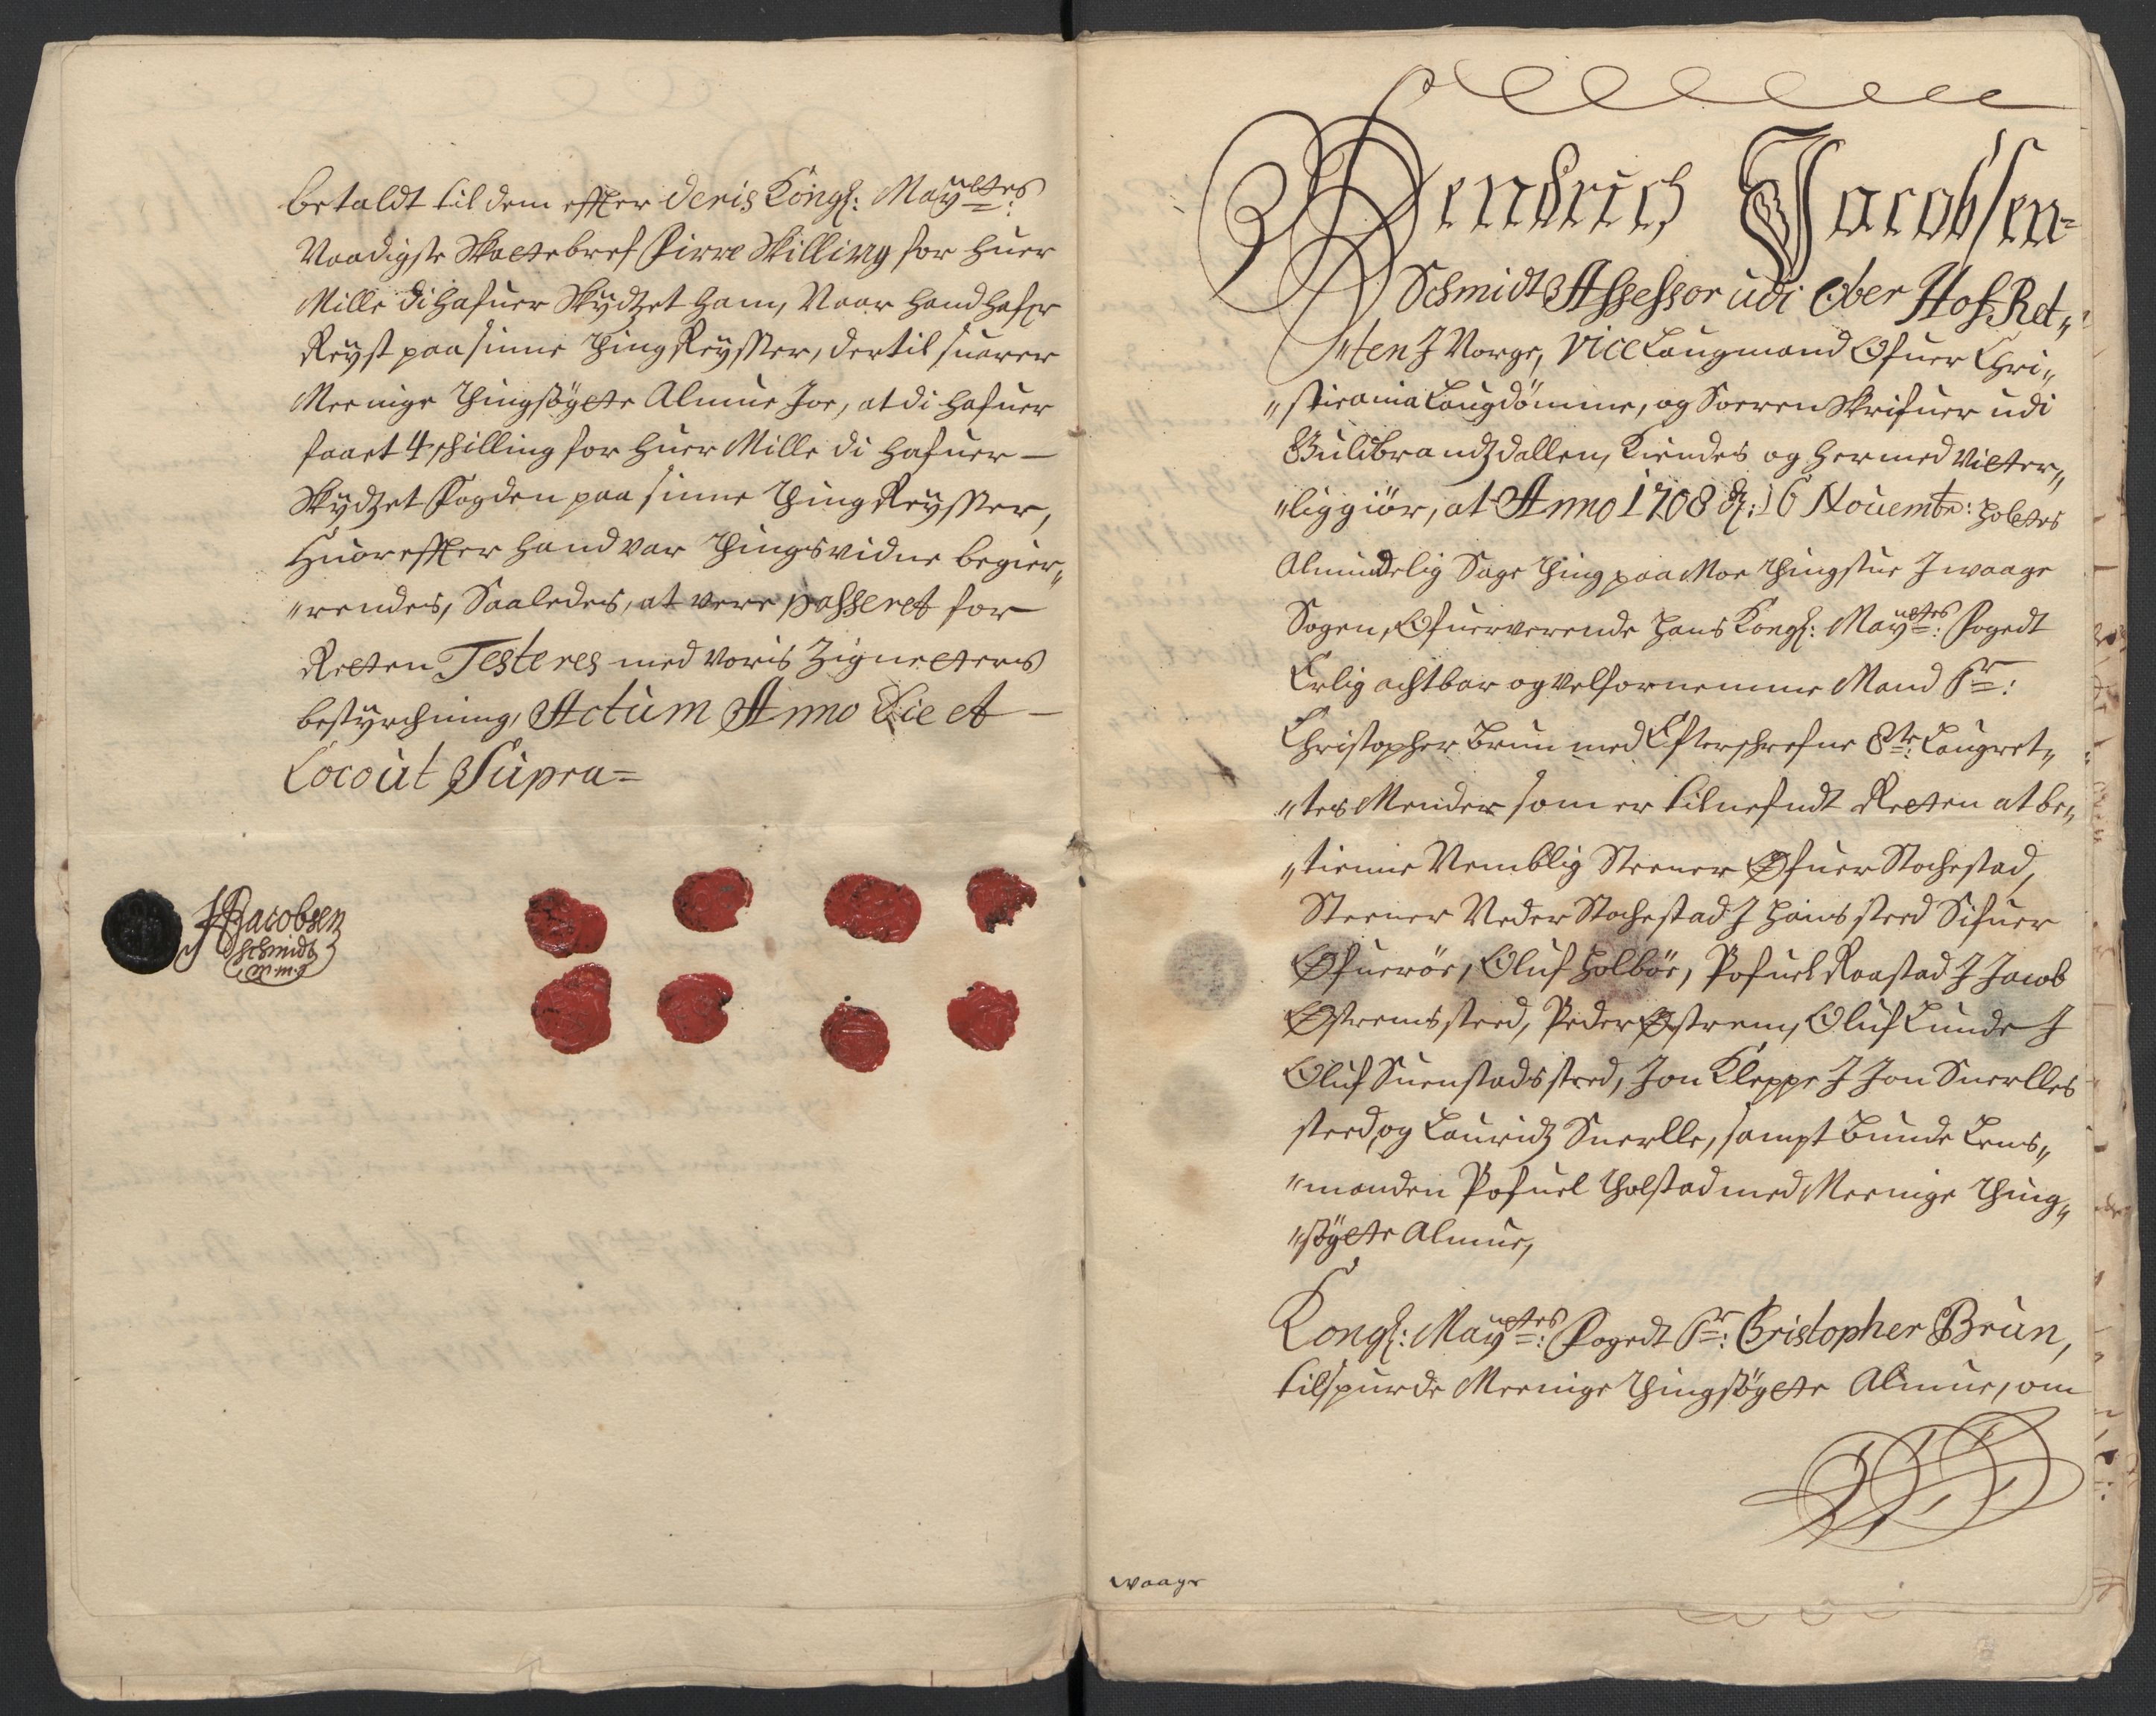 betaldt til dem effter deris Kongl: Mayttes:
Naadigste Skattebref Firre Skilling for huer
Mille di hafuer Skydtzet ham, Naar hand hafer
Reyst paa sinne Ting Reysser, dertil suarer
Meenige Tingsøgete Almue Joe, at di hafuer
faaet 4 skilling for huer Mille di hafuer –
Skydtzet Fogden paa sinne Ting Reysser,
Huoreffter hand var Tingsvidne begier„
„rendes, Saaledes, at vere passeret for
Retten Testeres med voris Zignetters
bestyrchning, Actum Anno Die et –
Loco ut Supra=
HJacobsen
Schmidt
m.m.p
Hendrich Jacobsen=
Schmidt Assessor udi Ober Hof Ret„
„ten J Norge, Vice Laugmand Ofuer Chri„
„stiania Laugdømme, og Soeren Skrifuer udi
Gulbrandzdallen, Kiendes og hermed vitter„
„lig giør, at Anno 1708 d: 16 Nouembr: holtes
Almindelig Sage Ting paa Moe Tingstue J waage
Sogen, Ofuerverende Hans Kongl: Mayttes: Fogedt
Erlig achtbar og velfornemme Mand Sr:
Christopher Brun med Efterschrefne 8te: Laugret„
„tes Mender som er tilnefndt Retten at be„
„tienne Nemblig Steener Øfuer Stochestad,
Steener Neder Stochestad J Hans sted Sifuer
Øfuerøe, Oluf Holbøe, Pofuel Raastad J Jacob
Østrems sted, Peder Østrem, Oluf Lunde J
Oluf Suenstads sted, Jon Kleppe J Jon Suerlles
sted, og Lauridz Suerlle, sampt Bunde Lens„
„manden Pofuel Tolstad med Meenige Ting„
„søgete Almue,
Kongl: Mayttes: Fogedt Sr: Christopher Brun,
tilspurde Meenige Tingsøgete Almue, om
waage